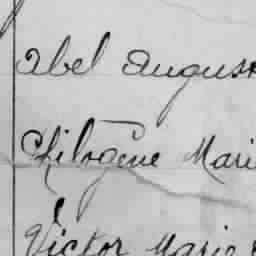 Abel Augus
Philogène Mari
Victor Marie